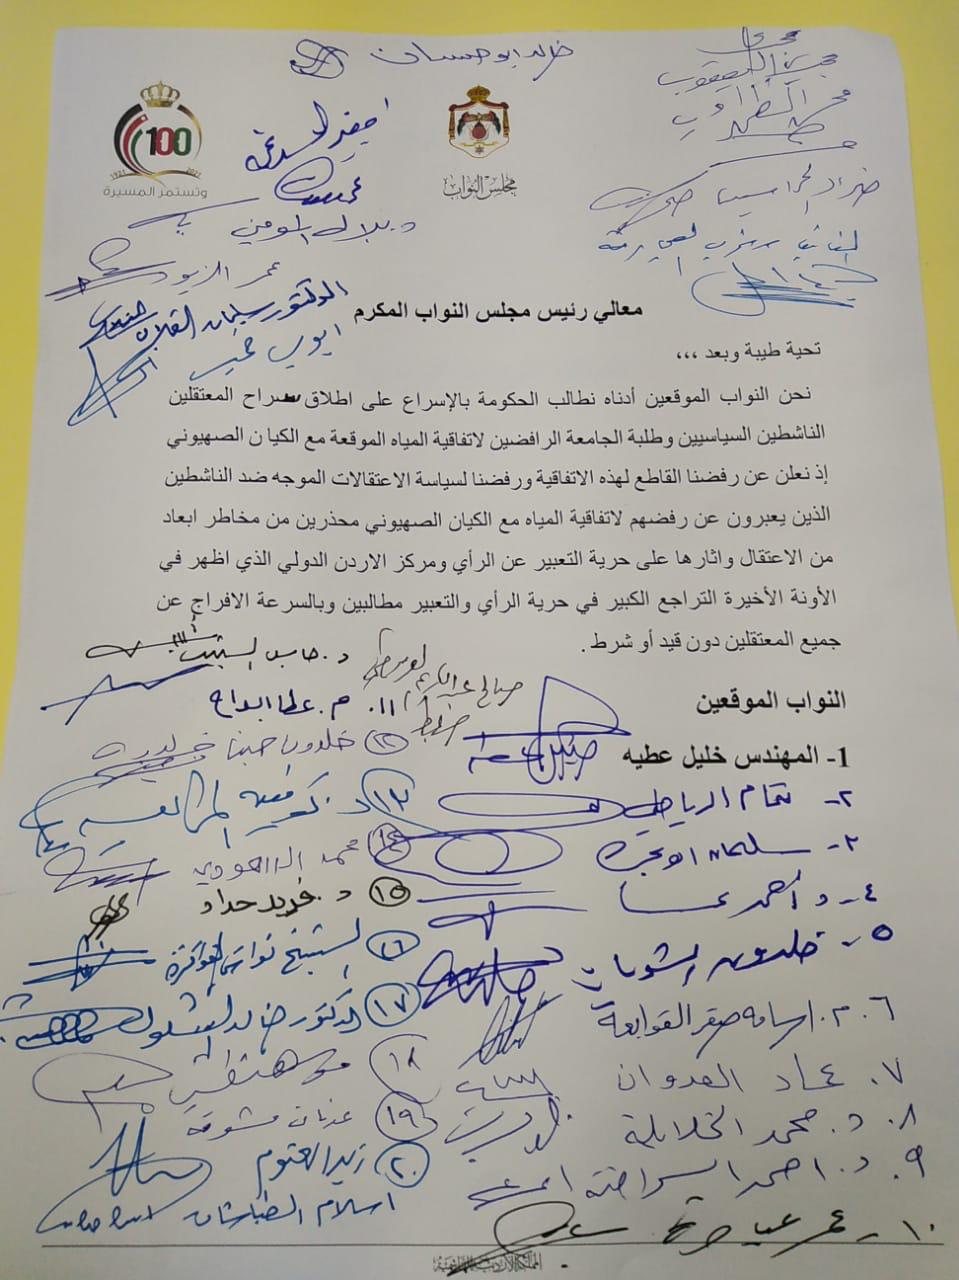 خالد ابو حسان
100
1921 2021
وتستمر المسيرة
مجلس النواب
د. بلال المومني
عمر الزيود
الدكتور سليمان القلاب
ايوب خميس
معالي رئيس مجلس النواب المكرم
تحية طيبة وبعد ،،،
نحن النواب الموقعين أدناه نطالب الحكومة بالإسراع على اطلاق سراح المعتقلين
الناشطين السياسيين وطلبة الجامعة الرافضين لاتفاقية المياه الموقعة مع الكيان الصهيوني
إذ نعلن عن رفضنا القاطع لهذه الاتفاقية ورفضنا لسياسة الاعتقالات الموجه ضد الناشطين
الذين يعبرون عن رفضهم لاتفاقية المياه مع الكيان الصهيوني محذرين من مخاطر ابعاد
من الاعتقال واثارها على حرية التعبير عن الرأي ومركز الاردن الدولي الذي اظهر في
الأونة الأخيرة التراجع الكبير في حرية الرأي والتعبير مطالبين وبالسرعة الافراج عن
جميع المعتقلين دون قيد أو شرط .
النواب الموقعين
1- المهندس خليل عطيه
٢- تمام الرياطي
٣- سليمان ابو يحيى
٤- د احمد
٥- خلدون الشويات
٦. م. اسامه صقر القوابعة
٧. عماد العدوان
٨. د. محمد الخلايلة
٩. د. احمد السراحنة
١٠- عمر عياصرة
١١. م. عطا ابداح
١٢ خلدون حينا
١٣ د.
١٤ محمد
١٥ د. فريد حداد
١٦ الشيخ نواش القواقزة
١٧ الدكتور خالد الشلول
١٨
١٩ عدنان مشوقة
٢٠ زيد العتوم
اسلام الطباشات
المملكة الأردنية الهاشمية